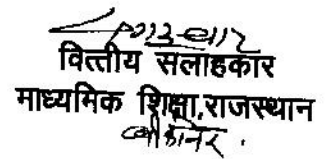 वित्तीय सलाहकार
माध्यमिक शिक्षा,राजस्थान
बीकानेर.